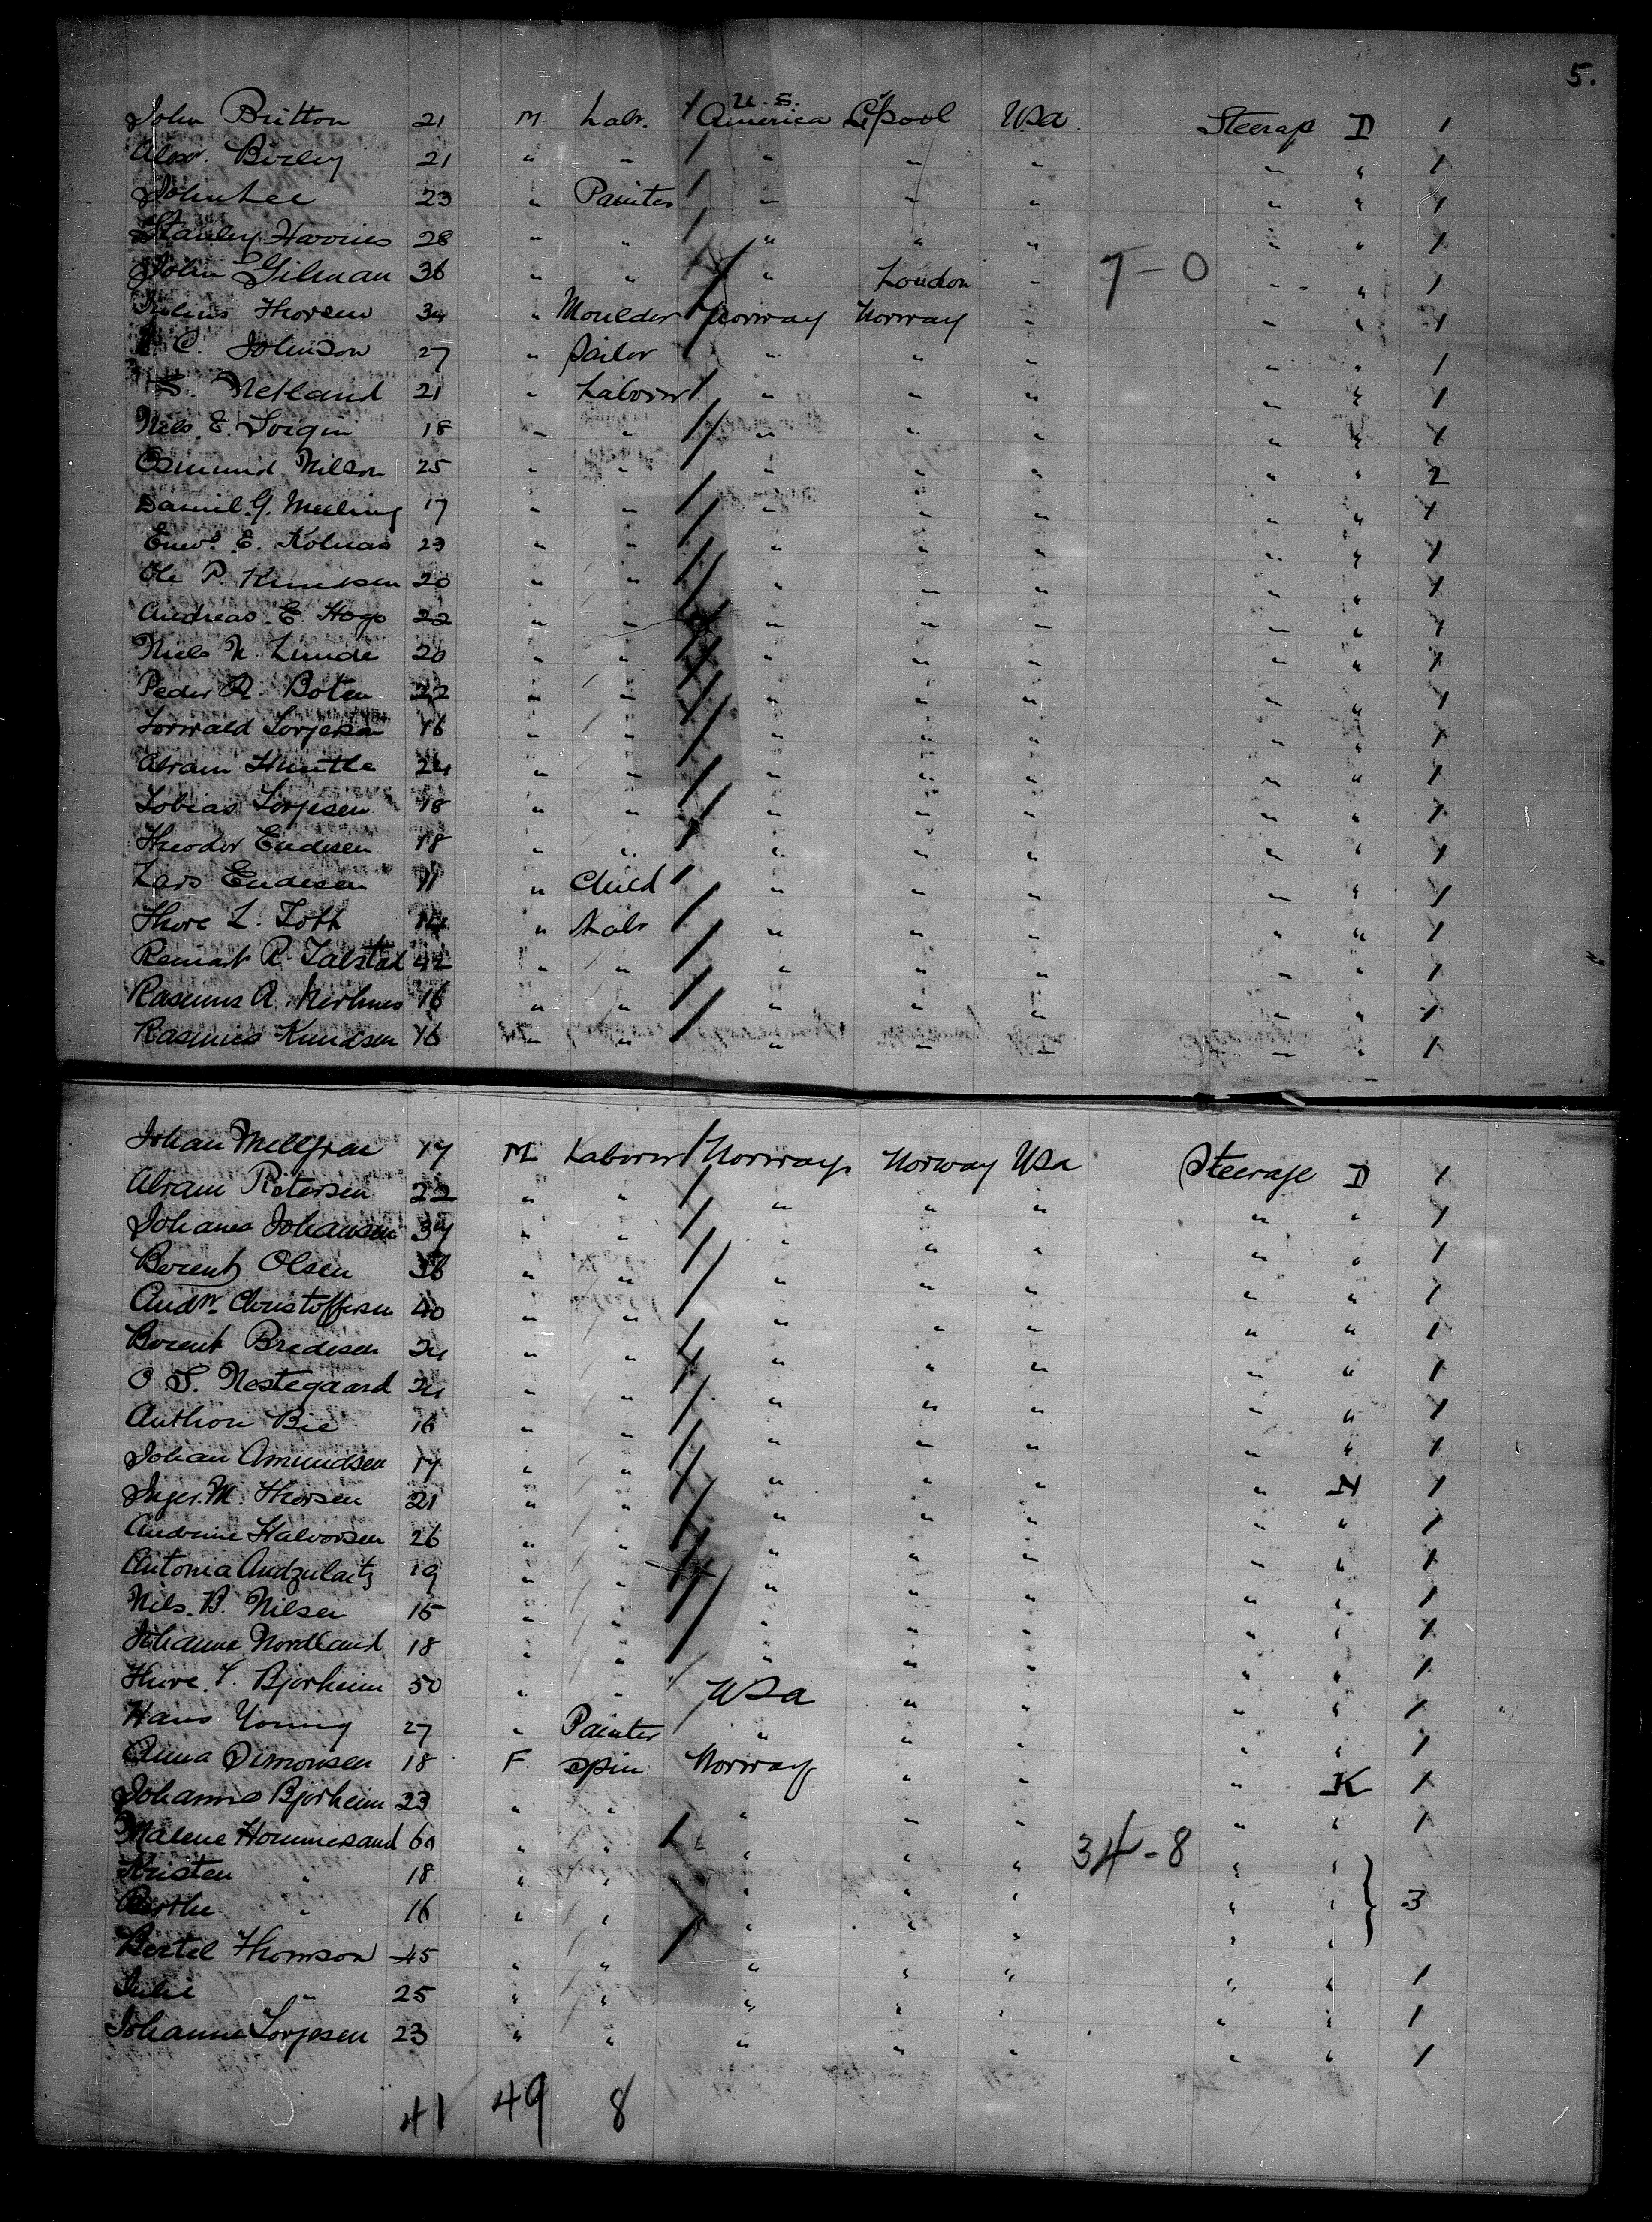 5.
John Britton 21 M. Labr. U.S. America L'pool USA. Steerage D 1
Alexr. Birley 21 " " " " " " " 1
John Lee 23 " Painter " " " " " 1
Stanley 28 " " " " " " " 1
John Gilman 36 " " " London " 7-0 " " 1
Julius Thorsen 34 " Moulder Norway Norway " " " 1
C. Johnson 27 " Sailor " " " " " 1
S. Netland 21 " Laborer " " " " " 1
Nils E. 18 " " " " " " " 1
Osmund Nilson 25 " " " " " " " 2
Daniel G. 17 " " " " " " " 1
E. 23 " " " " " " " 1
Ole P. Knudsen 20 " " " " " " " 1
Andreas E. 22 " " " " " " " 1
Niels N. Lunde 20 " " " " " " " 1
Peder Boten 22 " " " " " " " 1
Torwald Torjesen 16 " " " " " " " 1
Abram 24 " " " " " " " 1
Tobias Torjesen 18 " " " " " " " 1
Theodor Endesen 18 " " " " " " " 1
Lars Endesen 11 " Child " " " " " 1
Thore L. 14 " Labr " " " " " 1
R. 42 " " " " " " " 1
Rasmus R. 16 " " " " " " " 1
Rasmus Knudsen 16 " " " " " " " 1
Johan 17 M Laborer Norway Norway USA Steerage D 1
Abram Petersen 22 " " " " " " " 1
Johanes Johansen 37 " " " " " " " 1
Berent Olsen 36 " " " " " " " 1
Andw. Christoffersen 40 " " " " " " " 1
Berent Bredesen 24 " " " " " " " 1
O S. Nestegaard 24 " " " " " " " 1
Anthon Bie 16 " " " " " " " 1
Johan Amundsen 17 " " " " " " " 1
Inger. M. Thorsen 21 " " " " " " N 1
Andrine Halvorsen 26 " " " " " " " 1
Antonia 19 " " " " " " " 1
Nils. B. Nilsen 15 " " " " " " " 1
Johanna Nordland 18 " " " " " " " 1
Thore. T. Bjorheim 50 " " USA " " " " 1
Hans Young 27 " Painter " " " " " 1
Anna Simonsen 18 F Spin Norway " " " K 1
Johanna Bjorheim 23 " " " " " " " 1
Malene Hommesand 60 " " " " " 34-8 " "
Kristen " 18 " " " " " " " 3
Berthe " 16 " " " " " " "
Bertel Thomson 45 " " " " " " " 1
Julie " 25 " " " " " " " 1
Johanne Torjesen 23 " " " " " " " 1
41 49 8